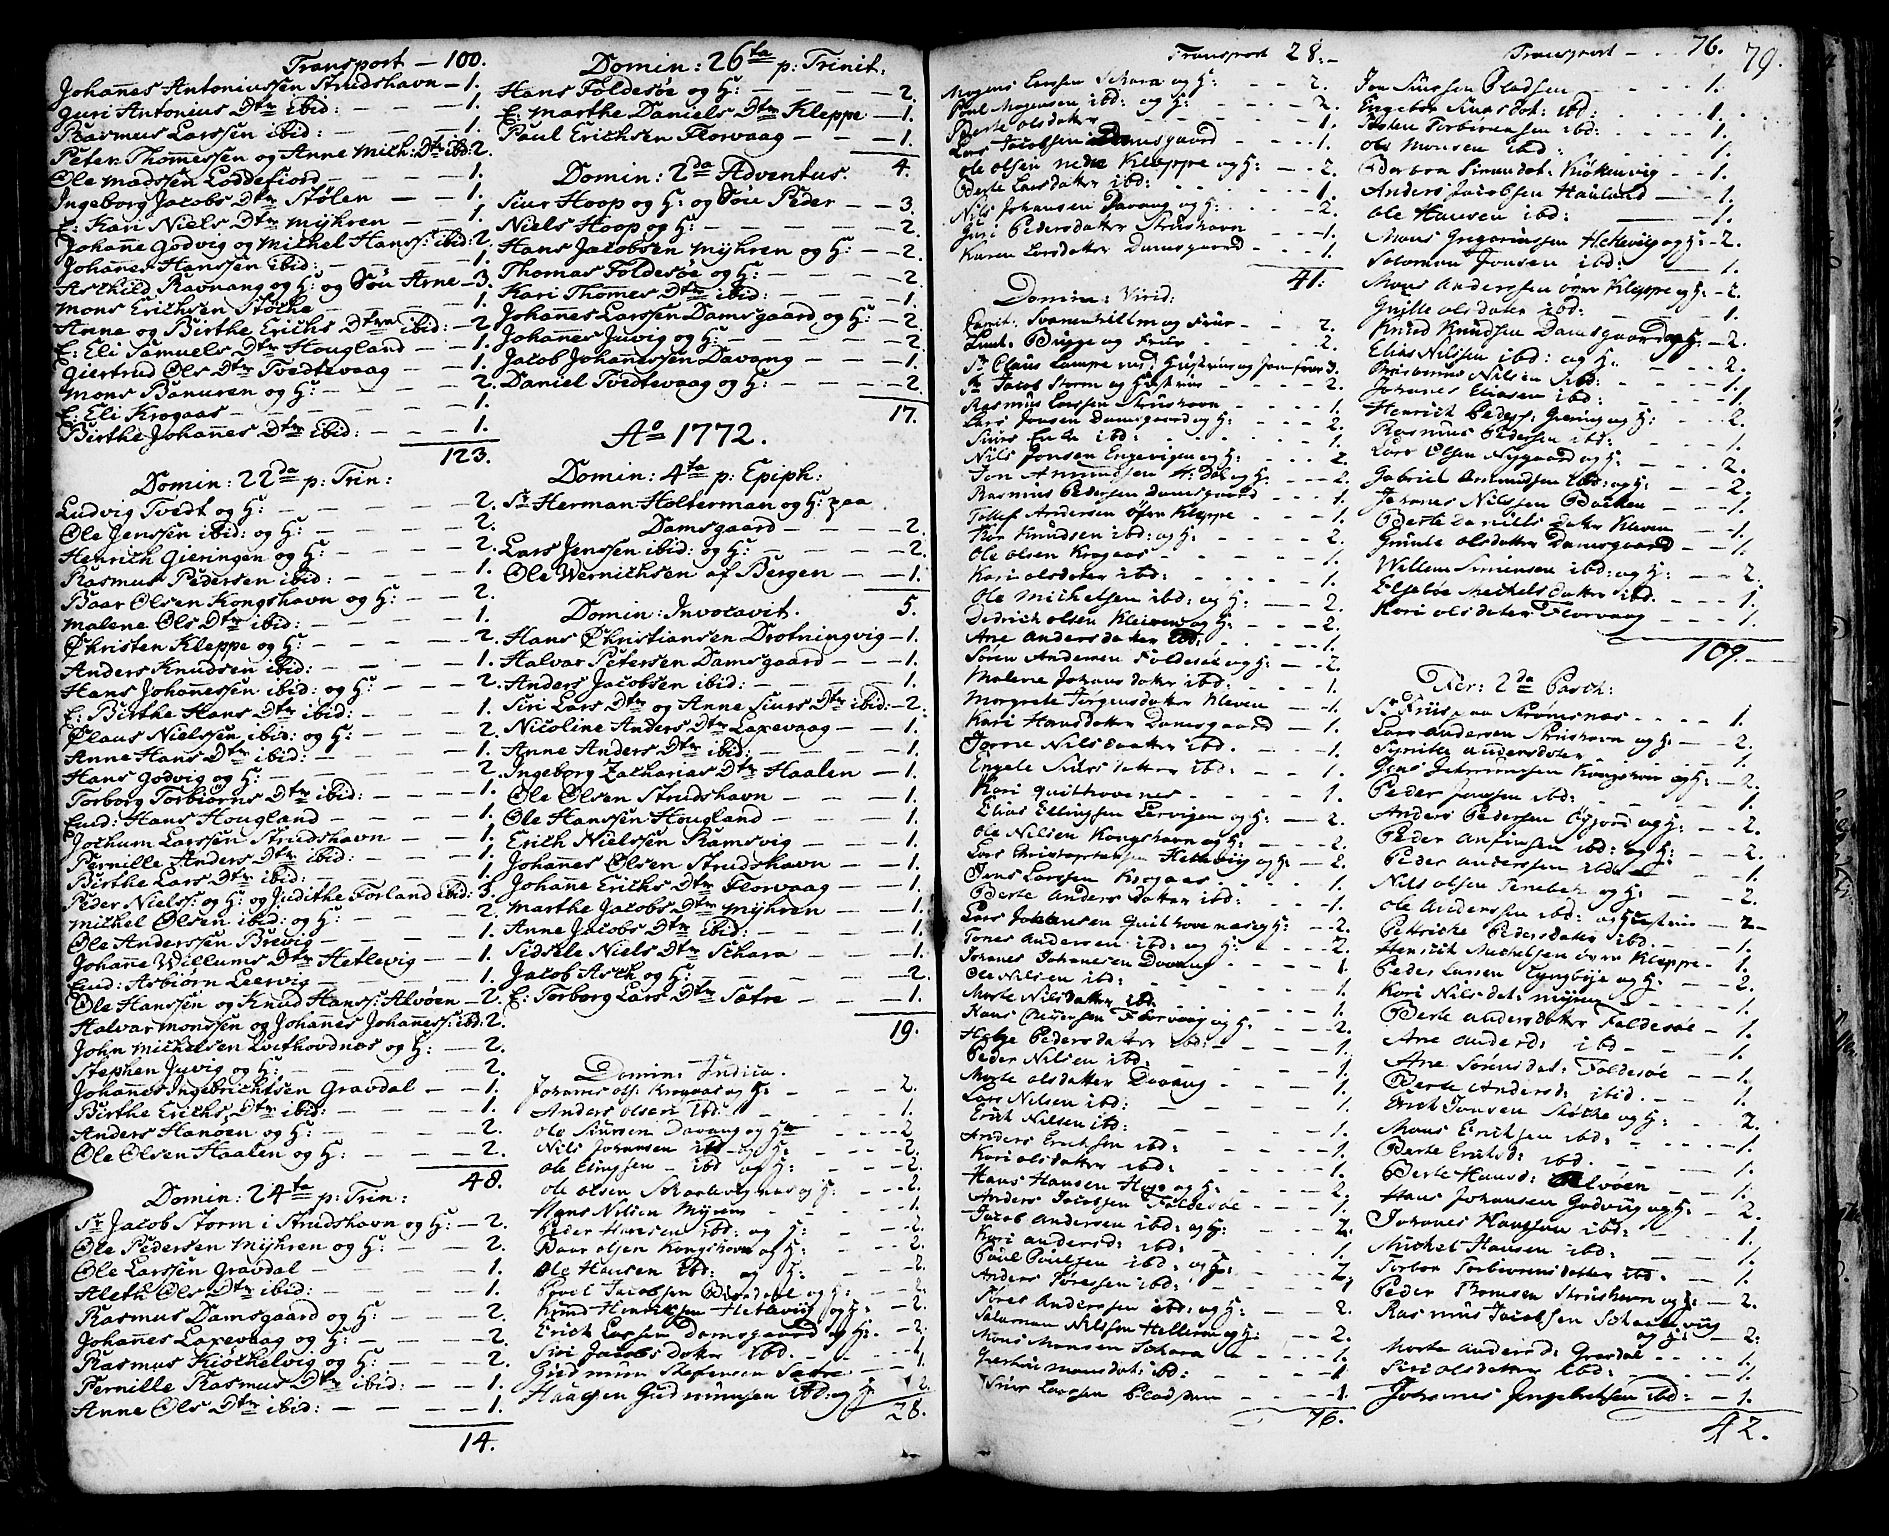 Transport — 100.
Johañes Antoniussen Strudshavn — 1.
Guri Antonius Dtr ibid: — 1.
Rasmus Larssen ibid: — 1.
Peter Thomessen og Anne Mich: Dtr ibid: 2.
Ole Madssen Loddefiord — 1.
Ingeborg Jacobs Dtr Stølen — 1.
E: Kari Niels Dtr Mÿhren — 1.
Johañe Godvig og Michel Hanss: ibid: 2.
Johañes Hanssen ibid: — 1.
Aschild Ravnang og H: og Søn Arne — 3.
Mons Erichsen Støche — 1.
Anne og Birthe Erichs Dtre ibid: — 2.
E: Eli Samuels Dtr Hougland — 1.
Giertrud Ols Dtr Tvedtevaag — 1.
Mons Banuren og H: — 2.
E: Eli Krogaas — 1.
Birthe Johañes Dtr ibid: — 1.
123.
Domin: 22da p: Trin:
Ludvig Tvedt og H: — 2.
Ole Jenssen ibid: og H: — 2.
Henrich Gieringen og H: — 2.
Rasmus Pedersen ibid: — 1.
Baar Olsen Kongshavn og H: — 2.
Malene Ols Dtr ibid: — 1.
Christen Kleppe og H: — 2.
Anders Knudsen ibid: — 1.
Hans Johañessen ibid: og H: — 2.
E: Birthe Hans Dtr ibid: — 1.
Claus Nielssen ibid: og H: — 2.
Anne Hans Dtr ibid: — 1.
Hans Godvig og H: — 2.
Torborg Torbiørns Dtr ibid: — 1.
Eud: Hans Hougland — 1.
Jochum Larssen Strudshavn — 1.
Pernille Anders Dtr ibid: — 1.
Birthe Lars Dtr ibid: — 1.
Peder Niels: og H: og Judithe Forland ibid: 3.
Michel Olsen ibid: og H: — 2.
Ole Anderssen Brevig — 1.
Johañe Willums Dtr Hetlevig — 1.
Eud: Asbiørn Leervig — 1.
Ole Hanssen og Knud Hanss: Alvøen — 2.
Halvar Monssen og Johañes Johañess: ibid: 2.
John Michelsen Qvithovdnæs og H: — 2.
Stephen Juvig og H: — 2.
Johañes Ingebrichtsen Gravdal — 1.
Birthe Erichs Dtr ibid: — 1.
Anders Hanøen og H: — 2.
Ole Olsen Haalen og H: — 2.
48.
Domin: 24ta p: Trin:
Sr Jacob Storm i Strudshavn og H: — 2.
Ole Pedersen Mÿhren og H: — 2.
Ole Larssen Gravdal — 1.
Aleth Ols Dtr ibid: — 1.
Rasmus Damsgaard og H: — 2.
Johañes Laxevaag og H: — 2.
Rasmus Kiøchelvig og H: — 2.
Pernille Rasmus Dtr ibid: — 1.
Anne Ols Dtr ibid: — 1.
14.
Domin: 26ta p: Trinit:
Hans Foldesøe og H: — 2.
E: Marthe Daniels Dtr Kleppe — 1.
Paul Erichsen Florvaag — 1.
4.
Domin: 2da Adventus.
Siur Hoop og H: og Søn Peder — 3.
Niels Hoop og H: — 2.
Hans Jacobsen Mÿhren og H: — 2.
Thomas Foldesøe og H: — 2.
Kari Thomes Dtr ibid: — 1.
Johañes Larssen Damsgaard og H: — 2.
Johañes Juvig og H: — 2.
Jacob Johañessen Davang — 1.
Daniel Tvedtevaag og H: — 2.
17.
Ao 1772.
Domin: 4ta p: Epiph:
Sr Herman Holterman og H: paa
Damsgaard — 2.
Lars Jenssen ibid: og H: — 2.
Ole Wernichsen af Bergen — 1.
5.
Domin: Invocavit.
Hans Christiansen Drotningvig — 1.
Halvar Petersen Damsgaard — 1.
Anders Jacobsen ibid: — 1.
Siri Lars Dtr og Anne Siurs Dtr ibid: — 2.
Nicoline Anders Dtr Laxevaag — 1.
Anne Anders Dtr ibid: — 1.
Ingeborg Zacharias Dtr Haalen — 1.
Ole Olsen Strudshavn — 1.
Ole Hanssen Hougland — 1.
Erich Nielssen Ramsvig — 1.
Johañes Olsen Strudshavn — 1.
Johañe Erichs Dtr Florvaag — 1.
Marthe Jacobs Dtr Mÿhren — 1.
Anne Jacobs Dtr ibid: — 1.
Sidsele Niels Dtr Schara — 1.
Jacob Asch og H: — 2.
E: Torborg Lars Dtr Sætre — 1.
19.
Domin: Judica.
Johannes ols: Krogaas og H: — 2.
Anders olsen ibd: — 1.
ole Siursen Davang og H: — 2.
Nils Johansen ibd og H: — 2.
ole Elingsen ibd og H: — 2.
ole olsen og H: — 2.
Hans Nilsen Myren — 1.
Peder Hansen ibd: og H: — 2.
Baar olsen Kongshavn og H: — 2.
Ole Hansen ibd: og H: — 2.
Povel Jacobsen og H: — 2.
Knud Henriksen Hetlevig og H: — 2.
Erich Larsen Damsgaard og H: — 2.
Siri Jacobs dotter ibd. — 1.
Gudmun Stefensen Sætre — 1.
Haagen Gudmunsen ibd: og H — 2.
28.
Transport 28. 
Mogens Larsen Schara og H: — 2.
Poul Mogensen ibd: og H: — 2.
Berte olsdatter — 1.
Lars Jacobsen Damsgaard — 1.
ole olsen nedre Kleppe og H: — 2.
Berte Larsdatter ibd: — 1.
Nils Johansen Davang og H: — 2.
Guri Pedersdatter Strushavn — 1.
Karen Larsdatter Damsgaard — 1.
41.
Domin: Virid:
Capit: Svanenhillm og Frue — 2.
Lieut: Brügge og Frue — 2.
Sr Claus Lampe med Hustrue og Jomfrue 3.
Sr Jacob Storm og Hustrue — 2.
Rasmus Larssen Strushavn — 1.
Lars Jonsen Damsgaard og H: — 2.
Siurs Enke ibd: — 1.
Nils Jonsen Engevigen og H: — 2.
Jon Amundsen og H: — 2.
Rasmus Pedersen Damsgaard — 1.
Tollef Andersen øfre Kleppe — 1.
Knudsen ibd: og H: — 2.
Ole olsen Krogaas — 1.
Kari olsdatter ibd: — 1.
Ole Michelsen ibd: og H: — 2.
Didrich olsen Kleiven og H: — 2.
Ane Andersdatter ibd: — 1.
Søren Andersen Foldesøe og H: — 2.
Malene Johans datter ibd: — 1.
Margrete Jørgensdatter Kleven — 1.
Kari Hansdatter Damsgaard — 1.
Nilsdaatter ibd. — 1.
Engele Siurs datter ibd: — 1.
Kari quithovenes — 1.
Elias Ellingsen Lervigen og H: — 2.
Ole Nilsen Kongshavn og H: — 2.
Lars Christophersen Hetlevig og H: — 2.
Jens Larssen Krogaas — 1.
Berte Anders datter ibd: — 1.
Lars Johansen Quithovenæs og H: — 2.
Tones Andersen ibd: og H: — 2.
Johanes Johanesen Davang — 1.
Ole Nilsen ibd: — 1.
Marte Nilsdatter ibd — 1.
Hans Florvaag og H: — 2.
Helge Pedersdatter ibd: — 1.
Peder Nilsen ibd: — 1.
Marte olsdatter Davang — 1.
Lars Nilsen ibd: — 1.
Erick Nilsen ibd: — 1.
Anders Ericksen ibd: — 1.
Kari olsdatter ibd: — 1.
Hans Hansen Hop og H: — 2.
Anders Jacobsen Foldesøe — 1.
Jacob Andersen ibd: og H: — 2.
Kari Andersd: ibd: — 1.
Poul Poulsen ibd: og H: — 2.
Anders ibd: — 1.
Anderssen ibd: og H: — 2.
Salamon Nilssen Halleren og H: — 2.
Mons Monsen Schara — 1.
Monsdat: ibd: — 1.
Siur Larssen Pladsen — 1.
76.
Transport — 76. 79.
Jon Siursen Pladsen — 1.
Engebor Siursdot: ibd: — 1.
Torbiørnsen ibd: — 1.
ole Monsen ibd: — 1.
Simundat: Kiökelvig — 1.
Anders Jacobsen Haulund — 1.
ole Hansen ibd: — 1.
Mons Gregoriussen Hetlevig og H: — 2.
Salomon Jonsen ibd: — 1.
Mons Anderssen øvre Kleppe og H: — 2.
Gurille olsdatter ibd: — 1.
Knud Knudsen Damsgaard og H: — 2.
Elias Nilssen ibd: og H: — 2.
Nilsen ibd: — 1.
Johanes Eliasen ibd: — 1.
Henrich Peders: Giering og H: — 2.
Rasmus Pedersen ibd: — 1.
Lars Olsen Nygaard og H: — 2.
Gabriel Ammundsen ibd: og H: — 2.
Johanes Nilssen Backen — 1.
Berte Daniels datter Kleven — 1.
Gunile olsdatter Damsgaard — 1.
Willem Simensen ibd: og H: — 2.
Elsebøe Michelsdatter ibd. — 1.
Kari olsdater Florvaag — 1.
109.
Fer: 2da Pasch:
Sr Friis paa Strømsnæs — 1.
Lars Andersen Strushavn og H: — 2.
Synneve Andersdoter — 1.
Jens Kongshavn og H: — 2.
Peder Jenssen ibd: — 1.
Anders Pedersen og H: — 2.
Peder Anfinsen ibd: og H: — 2.
Peder Anderssen ibd: — 1.
Nils olsen Tennebek og H: — 2.
ole Anderssen ibd: og Hustrue — 2.
Pettricke Pedersdatter ibd. — 1.
Henrich Michelsen øvre Kleppe — 1.
Peder Larsen Lyngbøe og H: — 2.
Kari Nilsdat: Myren — 1.
Berte Andersdatter Foldesøe — 1.
Ane Andersd: ibd — 1.
Ane Sørensdat: Foldesøe — 1.
Berte Andersd: ibid. — 1.
Erich Jonsen Støche og H: — 2.
Mons Erichsen ibd: — 1.
Berte Ericksd: ibd. — 1.
Berte Hansd: Alvøen — 1.
Hans Johansen Godvig og H: — 2.
Johanes Hanssen ibd: — 1.
Michel Hansen ibd: — 1.
Torbor Torbiørensdatter ibd: — 1.
Peder Tomsen Strushavn og H: — 2.
Rasmus Jacobsen
og H: — 2.
Marte Andersd: Gravdal — 1.
Siri olsdatter ibd: — 1.
Johannes Ingebretsen ibd: — 1.
42.